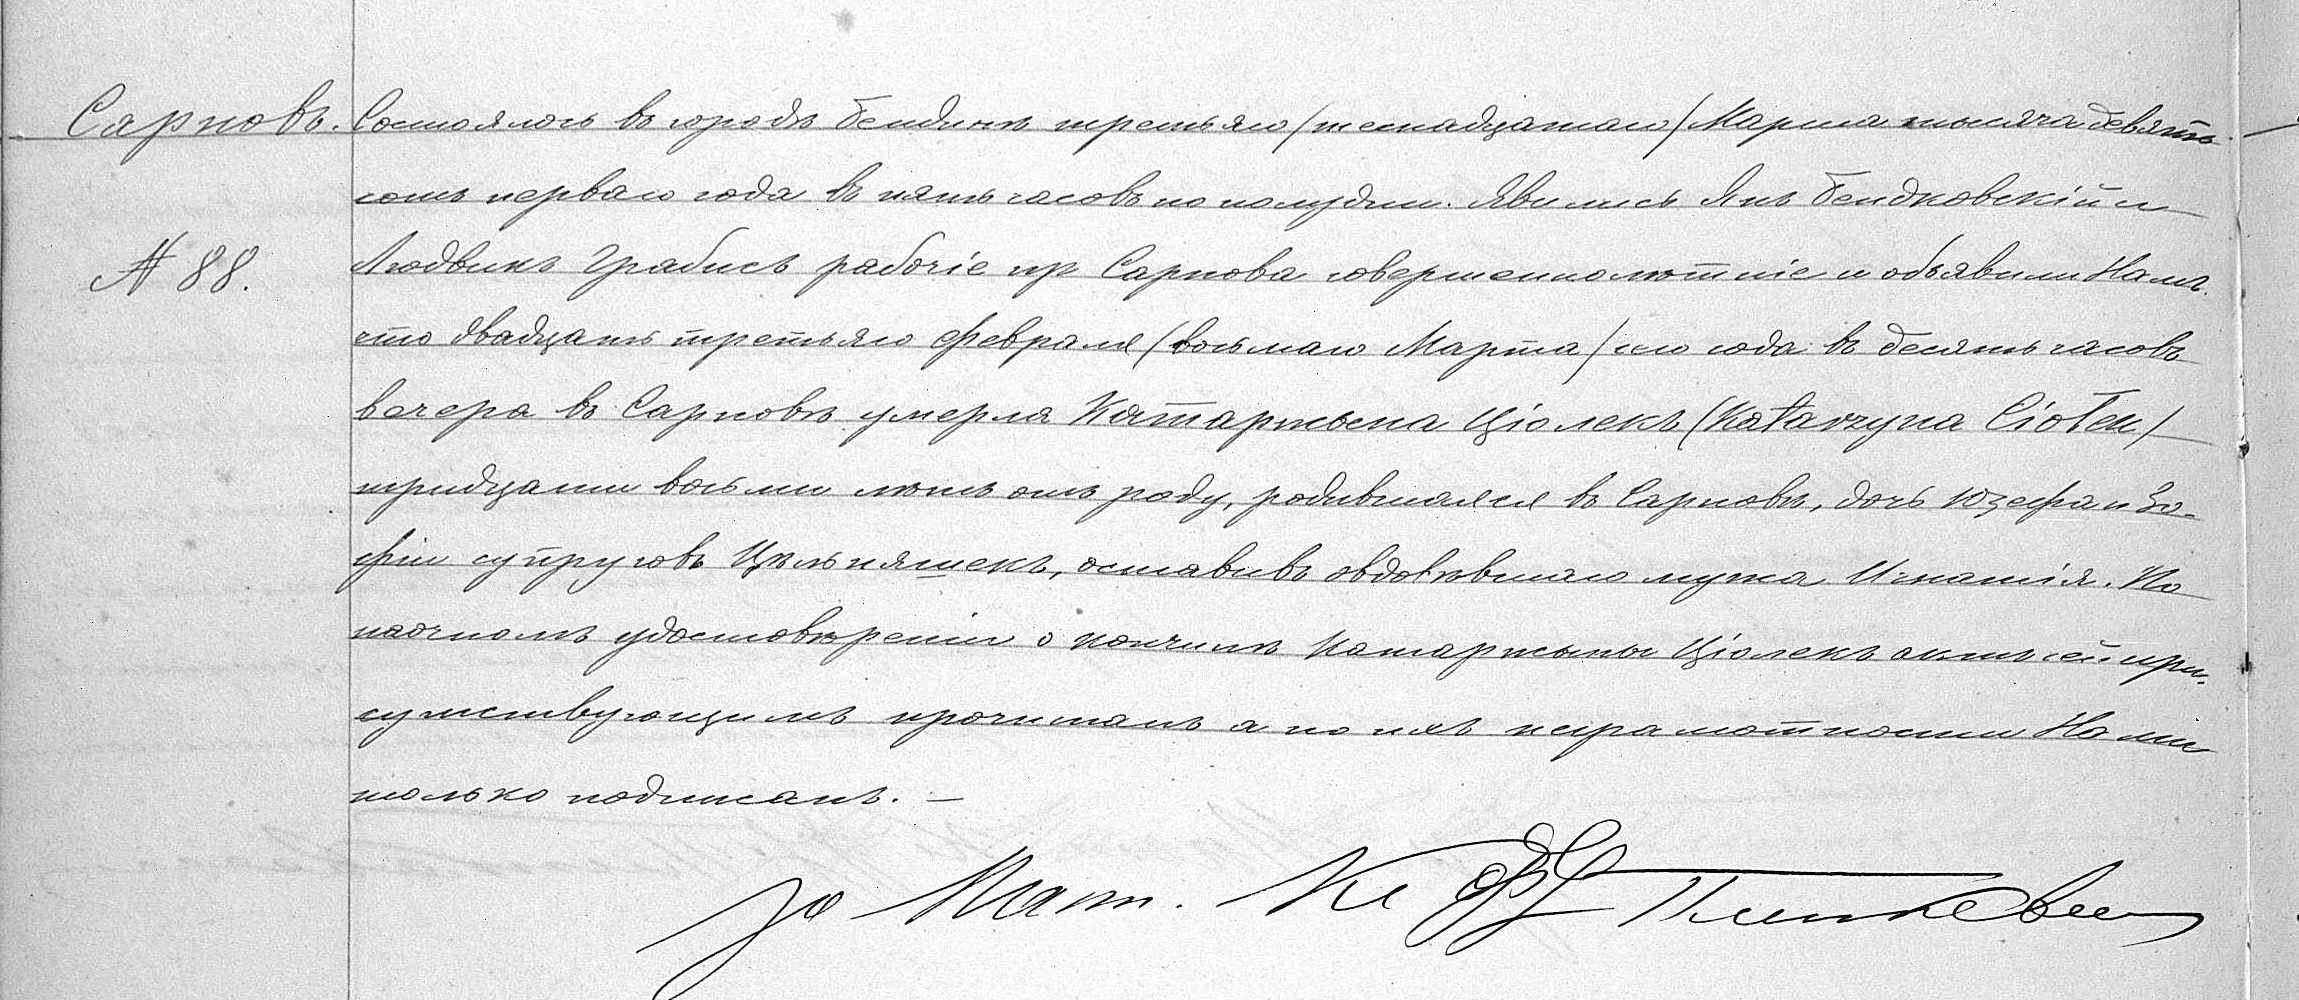 Сарновъ.
Состоялось въ городѣ Бендинѣ третьяго /шестнадцатаго/ Марта тысяча девять-
сотъ перваго года въ пять часовъ по полудни. Явились Янъ Бендковскій и
№ 88.
Людвикъ Грабисъ рабочіе изъ Сарнова совершеннолѣтніе и объявили Намъ
что двадцать третьяго Февраля /восьмаго Марта/ сего года въ десять часовъ
вечера въ Сарновѣ умерла Катаржина Ціолекъ /Katarzyna Ciołek/
тридцати восьми лѣтъ отъ роду, родившаяся въ Сарновѣ, дочь Юзефа и Зо-
фіи супруговъ оставивъ овдовѣвшаго мужа Игнатія. По
наочномъ удостовѣреніи о кончинѣ Катаржины Ціолекъ актъ сей при-
сутствующимъ прочитанъ а по ихъ неграмотности Нами
только подписанъ. —